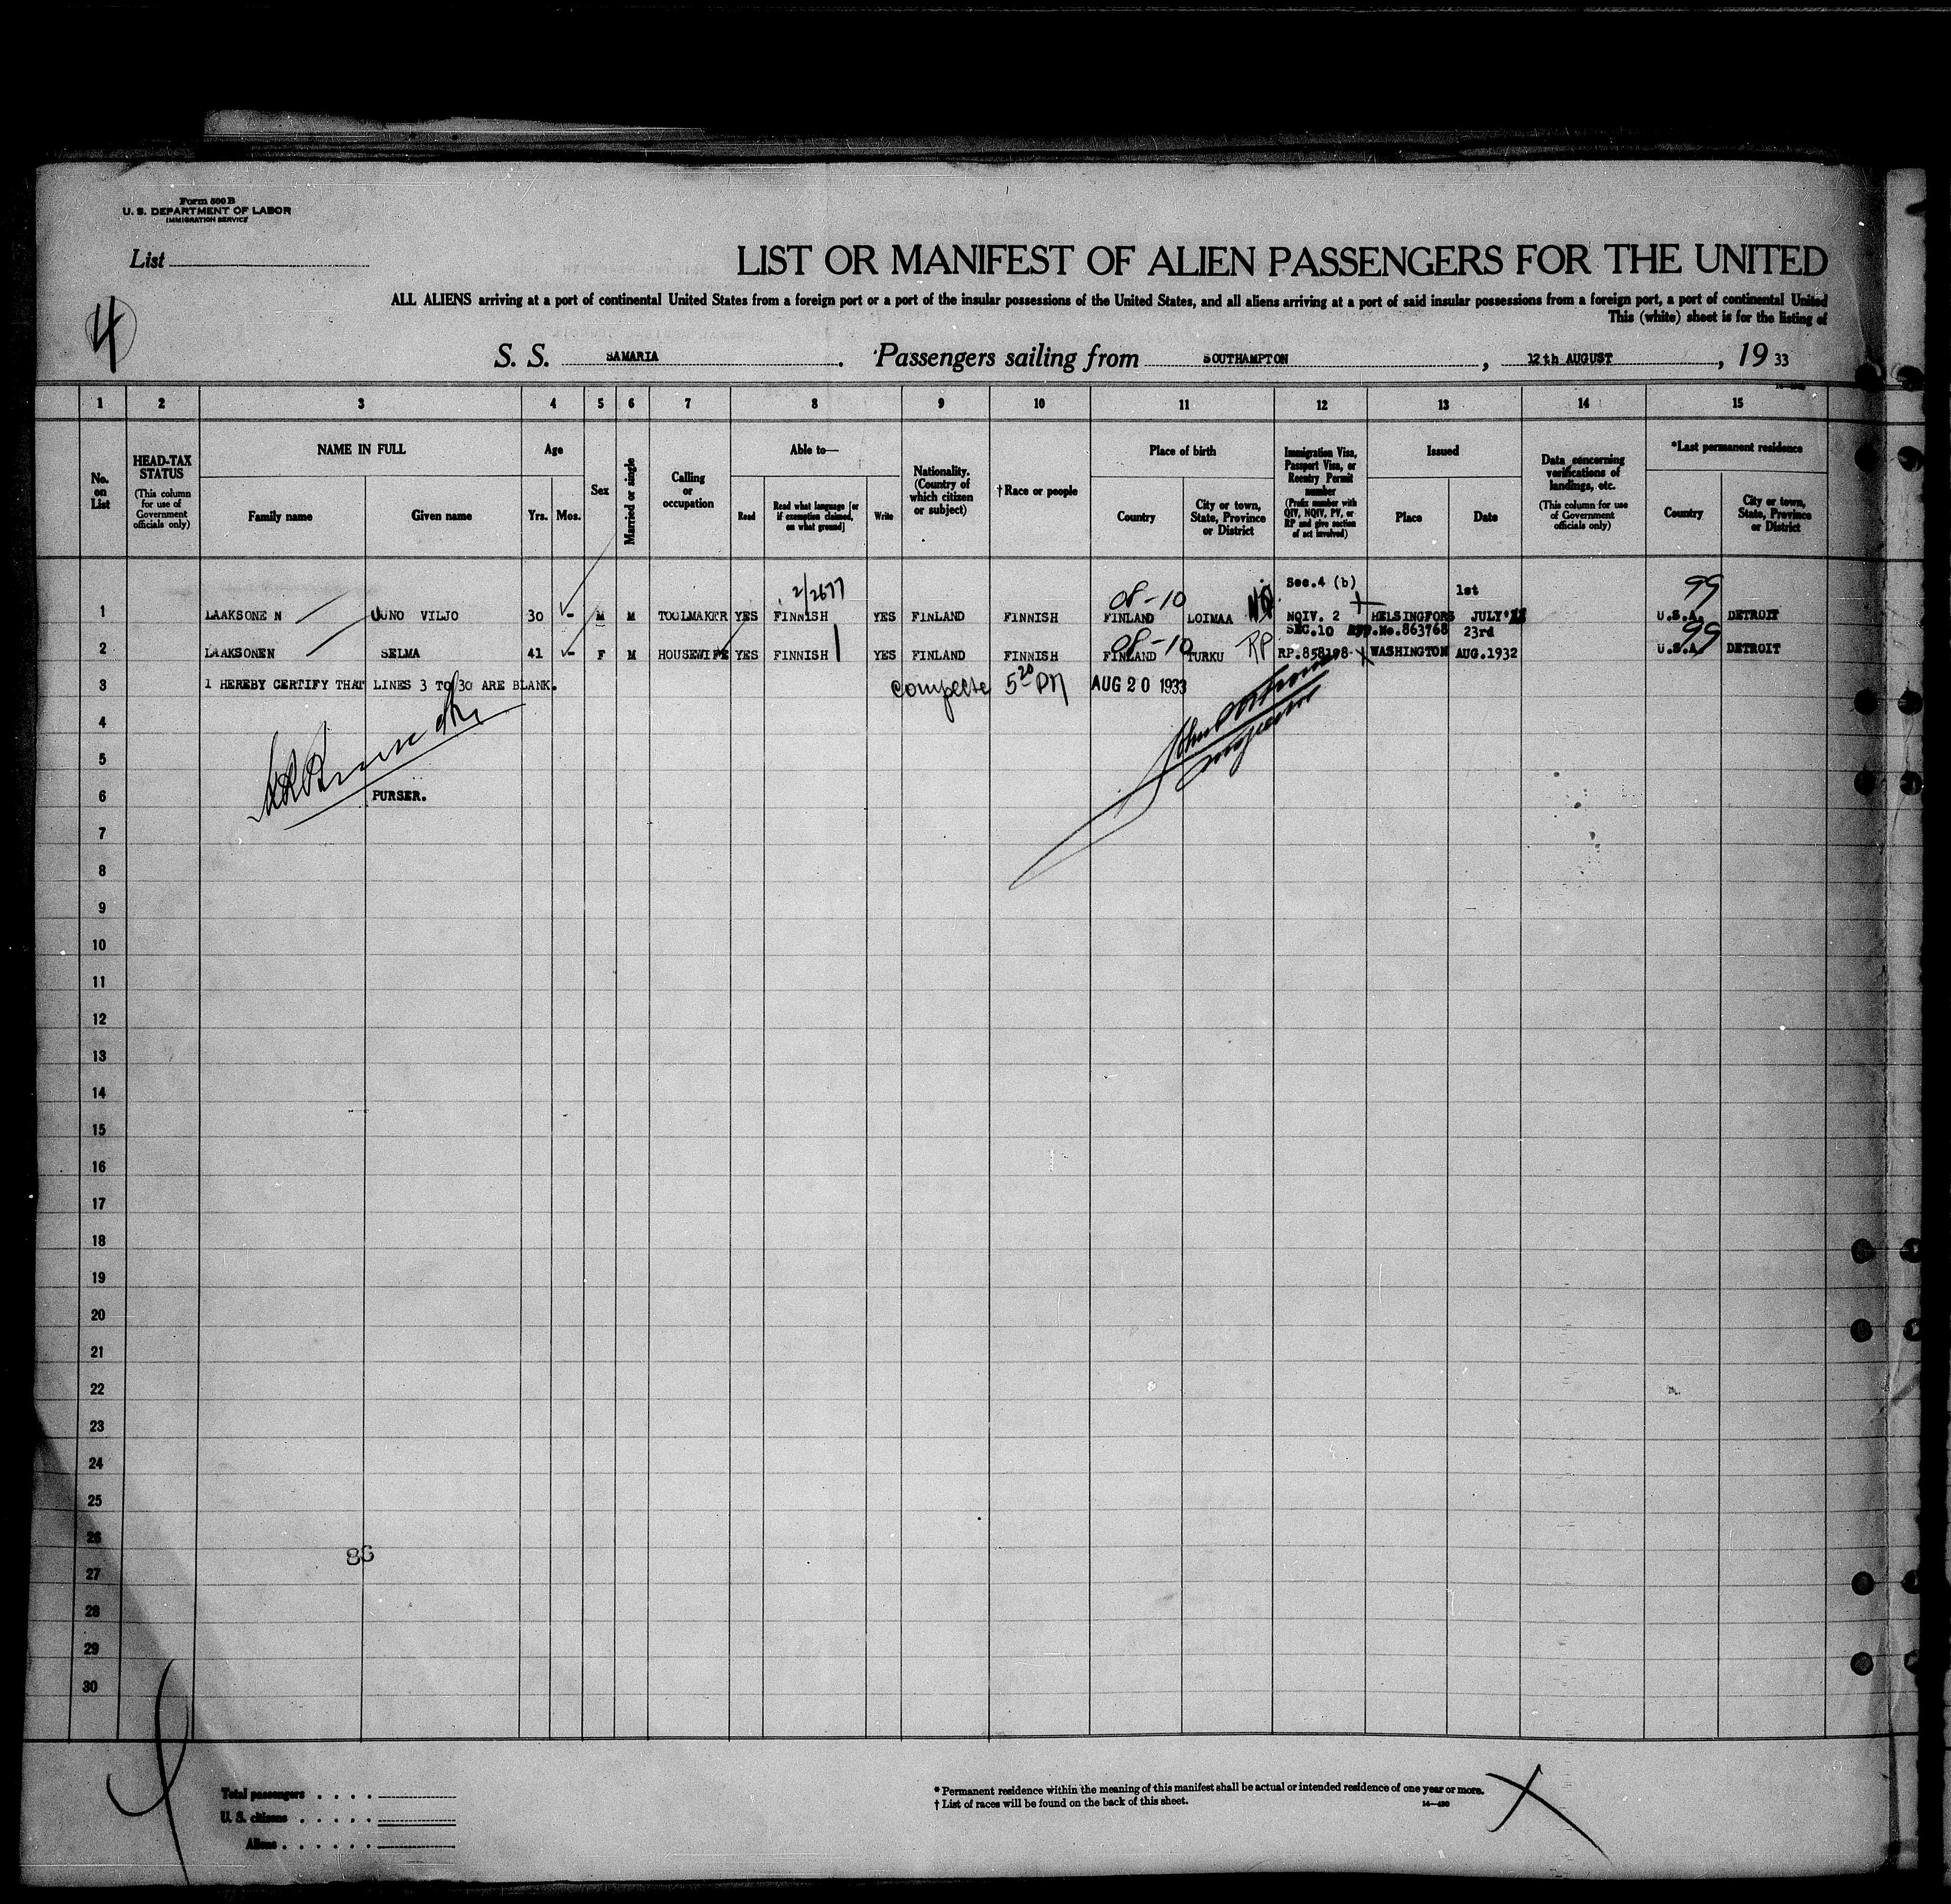 Form 500 B
U. S. DEPARTMENT OF LABOR
IMMIGRATION SERVICE
List
LIST OR MANIFEST OF ALIEN PASSENGERS FOR THE UNITED
ALL ALIENS arriving at a port of continental United States from a foreign port or a port of the insular possessions of the United States, and all aliens arriving at a port of said insular possessions from a foreign port, a port of continental United
This (white) sheet is for the listing of
4
S. S. SAMARIA. Passengers sailing from SOUTHAMPTON, 12th AUGUST, 19 33
1 2 3 4 5 6 7 8 9 10 11 12 13 14 15
No. on List
HEAD-TAX STATUS
(This column for use of Government officials only)
NAME IN FULL
Family name Given name
Age
Yrs. Mos.
Sex
Married or single
Calling or occupation
Able to—
Read
Read what language [or if exemption claimed, on what ground]
Write
Nationality. (Country of which citizen or subject)
† Race or people
Place of birth
Country
City or town, State, Province or District
Immigration Visa, Passport Visa, or Reentry Permit number
(Prefix number with QIV, NQIV, PV, or RP and give section of act involved)
Issued
Place Date
Data concerning verifications of landings, etc.
(This column for use of Government officials only)
*Last permanent residence
Country
City or town, State, Province or District
2/2677 08-10 Sec.4 (b) 1st 99
1 LAAKSONE N UUNO VILJO 30 - M M TOOLMAKER YES FINNISH YES FINLAND FINNISH FINLAND LOIMAA NQIV. 2 HELSINGFORS JULY U.S.A. DETROIT
08-10 RP SEC.10 No.863768 23rd 99
2 LAAKSONEN SELMA 41 - F M HOUSEWIFE YES FINNISH YES FINLAND FINNISH FINLAND TURKU RP.858198 WASHINGTON AUG.1932 U.S.A. DETROIT
3 I HEREBY CERTIFY THAT LINES 3 TO 30 ARE BLANK. 5 20 PM AUG 20 1933
4
5
6 PURSER.
7
8
9
10
11
12
13
14
15
16
17
18
19
20
21
22
23
24
25
26
86
27
28
29
30
Total passengers
U. S. citizens
Aliens
* Permanent residence within the meaning of this manifest shall be actual or intended residence of one year or more.
† List of races will be found on the back of this sheet.